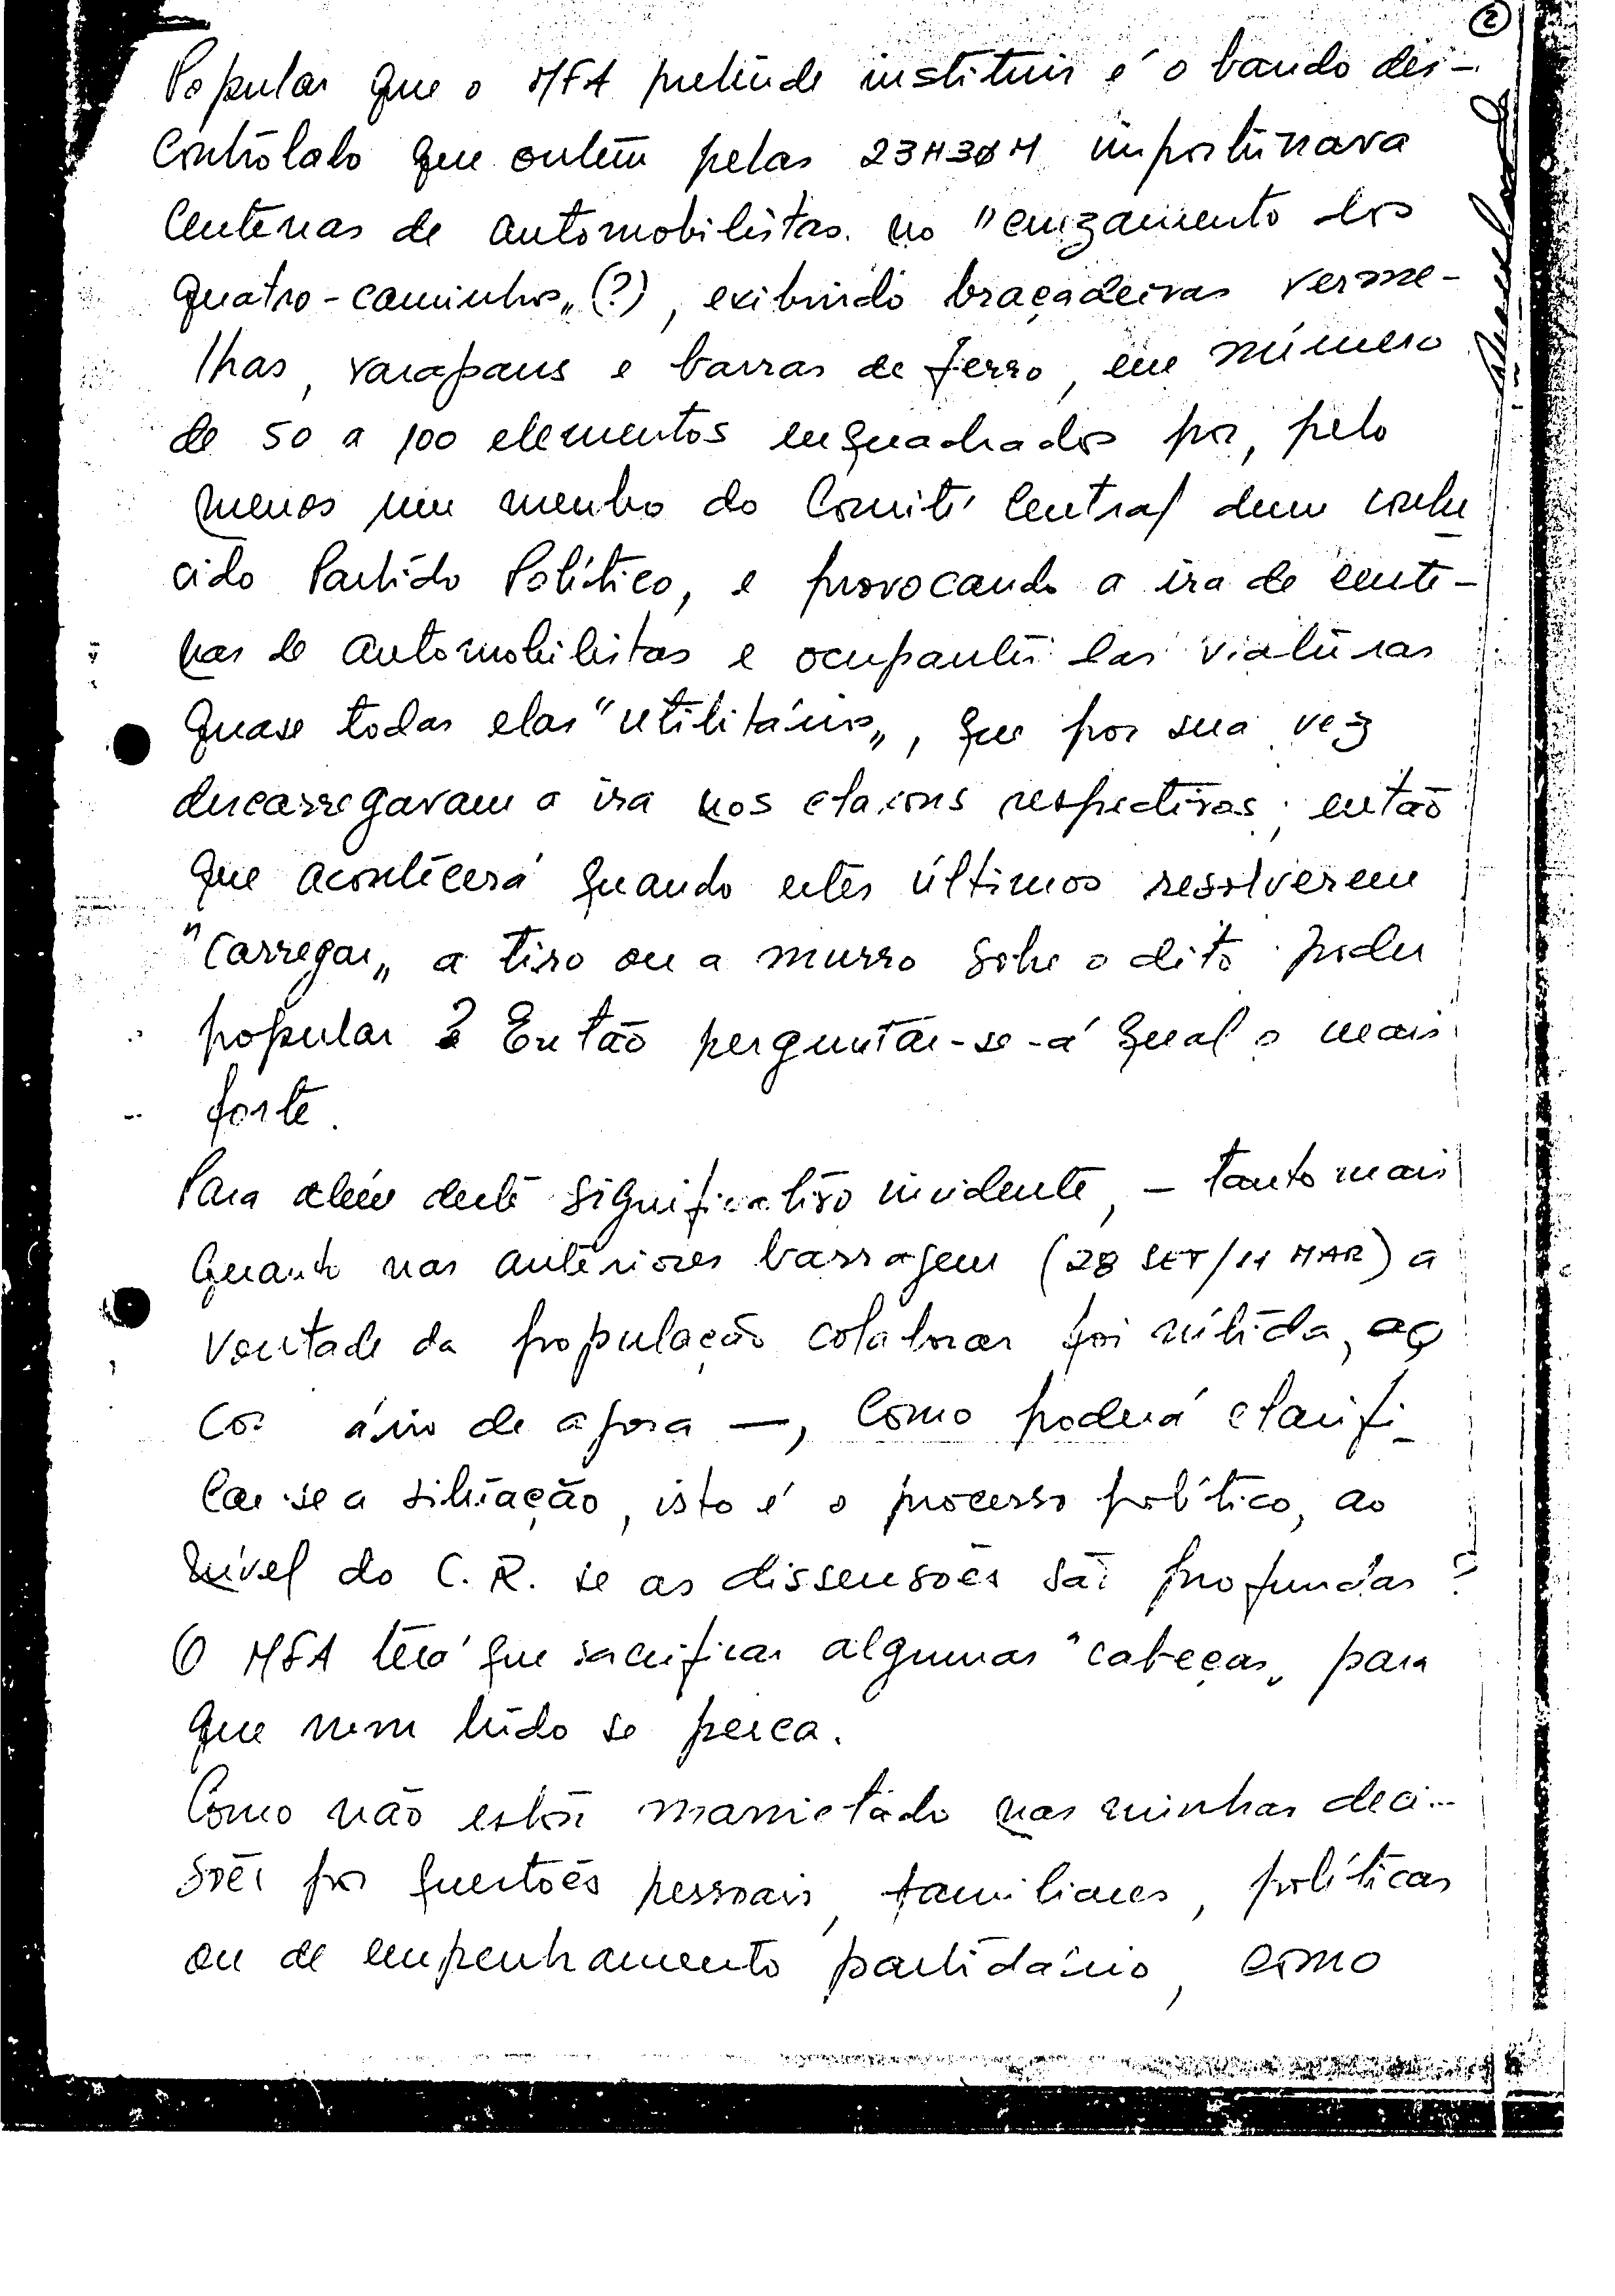 2
Popular que o MFA pretende instituir é o bando des-
contrôlato que ontem pelas 23H30M importunava
centenas de automobilistas no "cruzamento dos
quatro-caminhos" (?), exibindo braçadeiras verme-
lhas, varapaus e barras de ferro, em número
de 50 a 100 elementos enquadrados por, pelo
menos um membro do Comité Central dum conhe
cido Partido Político, e provocando a ira de cente-
nas de automobilistas e ocupantes das viaturas
quase todas elas "utilitários", que por sua vez
descarregavam a ira nos claxons respectivos; então
que acontecerá quando estes últimos resolverem
"carregar" a tiro ou a murro sobre o dito poder
popular? Então perguntar-se-á qual o mais
forte.
Para além deste significativo incidente, - tanto mais
quanto nas anteriores barragem (28 SET/11 MAR) a
vontade da população colaborar foi nítida, ao
co ário de agora -, como poderá clarifi-
car-se a situação, isto é o processo político, ao
nível do C.R. se as dissensões são profundas?
O MFA terá que sacrificar algumas "cabeças" para
que nem tudo se perca.
Como não estou manietado nas minhas deci-
sões por questões pessoais, familiares, políticas
ou de empenhamento partidário, como